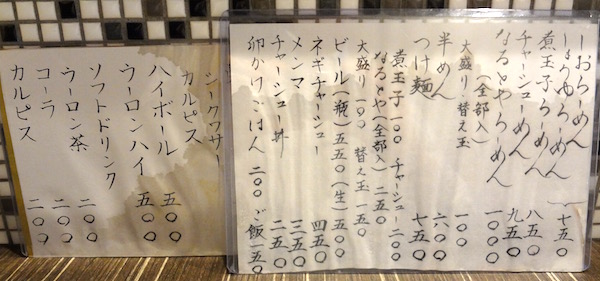 しおらーめん
しょうゆらーめん 七五〇
煮玉子らーめん 八五〇
チャーシューめん 九五〇
なるとやらーめん 一〇〇〇
(全部入)
大盛り 替え玉 一〇〇
半めん 六〇〇
つけ麺 七五〇
煮玉子 一〇〇 チャーシュー 二〇〇
なるとや(全部入) 二五〇
大盛り 一〇〇 替え玉 一五〇
ビール(瓶)五五〇(生)五〇〇
ネギチャーシュー 四五〇
メンマ 三五〇
チャーシュー丼 二五〇
卵かけごはん 二〇〇 ご飯 一五〇
シークワサー
カルピス
ハイボール 五〇〇
ウーロンハイ 五〇〇
ソフトドリンク
ウーロン茶 二〇〇
コーラ 二〇〇
カルピス 二〇〇